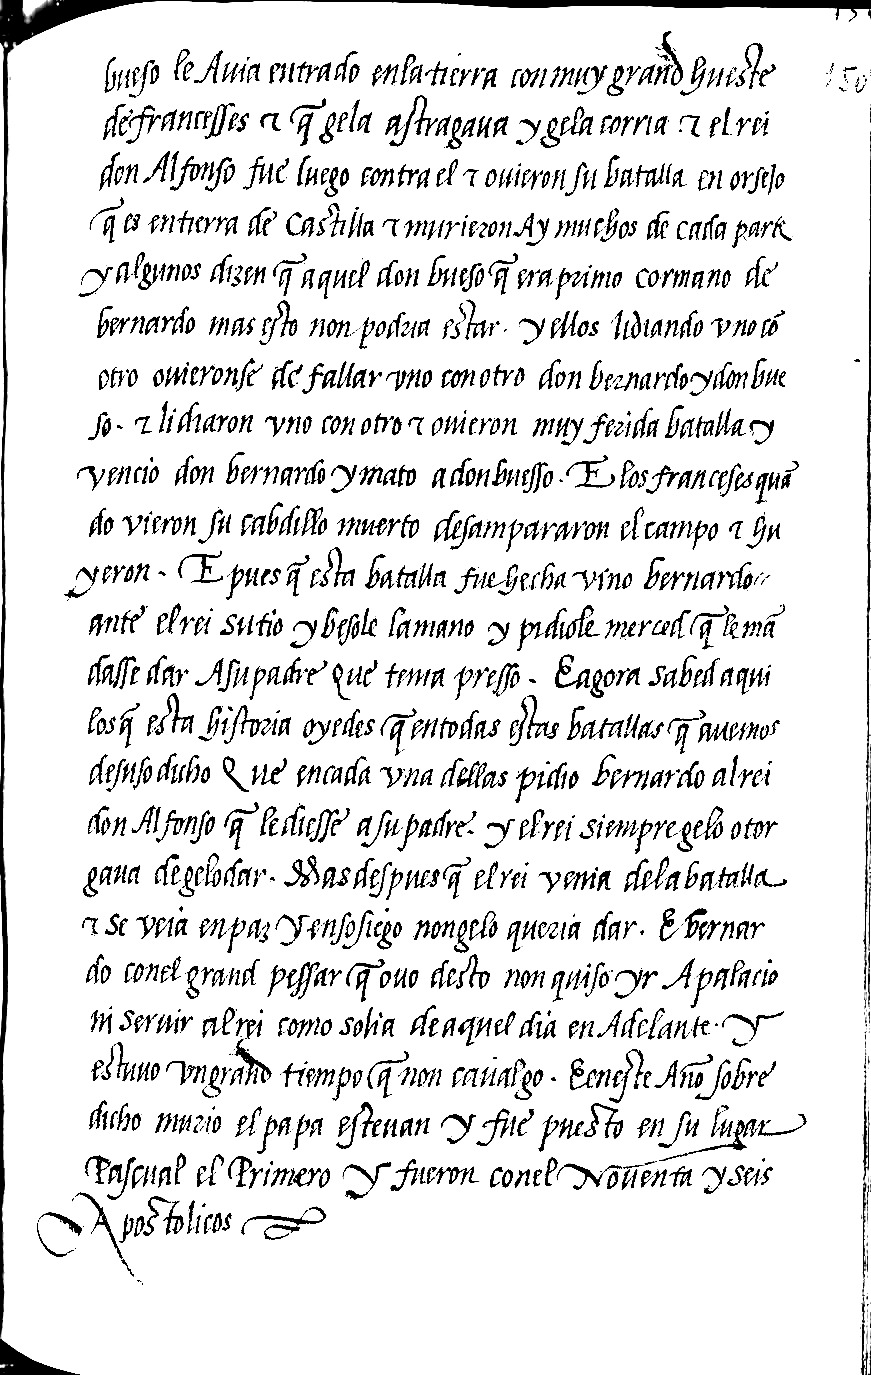 150
bueso le Auia entrado enla tierra con muy grand hueste
de francesses τ q̃ gela astragaua y gela corria τ el rei
don Alfonso fue luego contra el τ ouieron su batalla en orsejo
q̃ es en tierra de Castilla τ murieron Ay muchos de cada parte
y algunos dizen q̃ aquel don bueso q̃ era primo cormano de
bernardo mas esto non podria estar. y ellos lidiando vno cõ
otro ouieronse de fallar vno con otro don bernardo y don bue
so. τ lidiaron vno con otro τ ouieron muy ferida batalla y
vencio don bernardo y mato a don buesso. E los franceses quã
do vieron su cabdillo muerto desampararon el campo τ hu
yeron. E pues q̃ esta batalla fue hecha vino bernardo
ante el rei su tio y besole la mano y pidiole merced q̃ le mã
dasse dar A su padre Que tenia presso. E agora sabed aqui
los q̃ esta historia oyedes q̃ en todas estas batallas q̃ auemos
desuso dicho Que en cada vna dellas pidio bernardo al rei
don Alfonso q̃ le diesse a su padre. y el rei siempre gelo otor
gaua de gelo dar. Mas despues q̃ el rei venia de la batalla
τ se veia en paz y en sosiego non gelo queria dar. E bernar
do con el grand pessar q̃ ouo desto non quiso yr A palacio
ni seruir al rei como solia de aquel dia en Adelante. y
estuuo vn grand tiempo q̃ non caualgo. E en este Año sobre
dicho murio el papa esteuan y fue puesto en su lugar
Pascual el Primero y fueron con el Nouenta y seis
Apostolicos